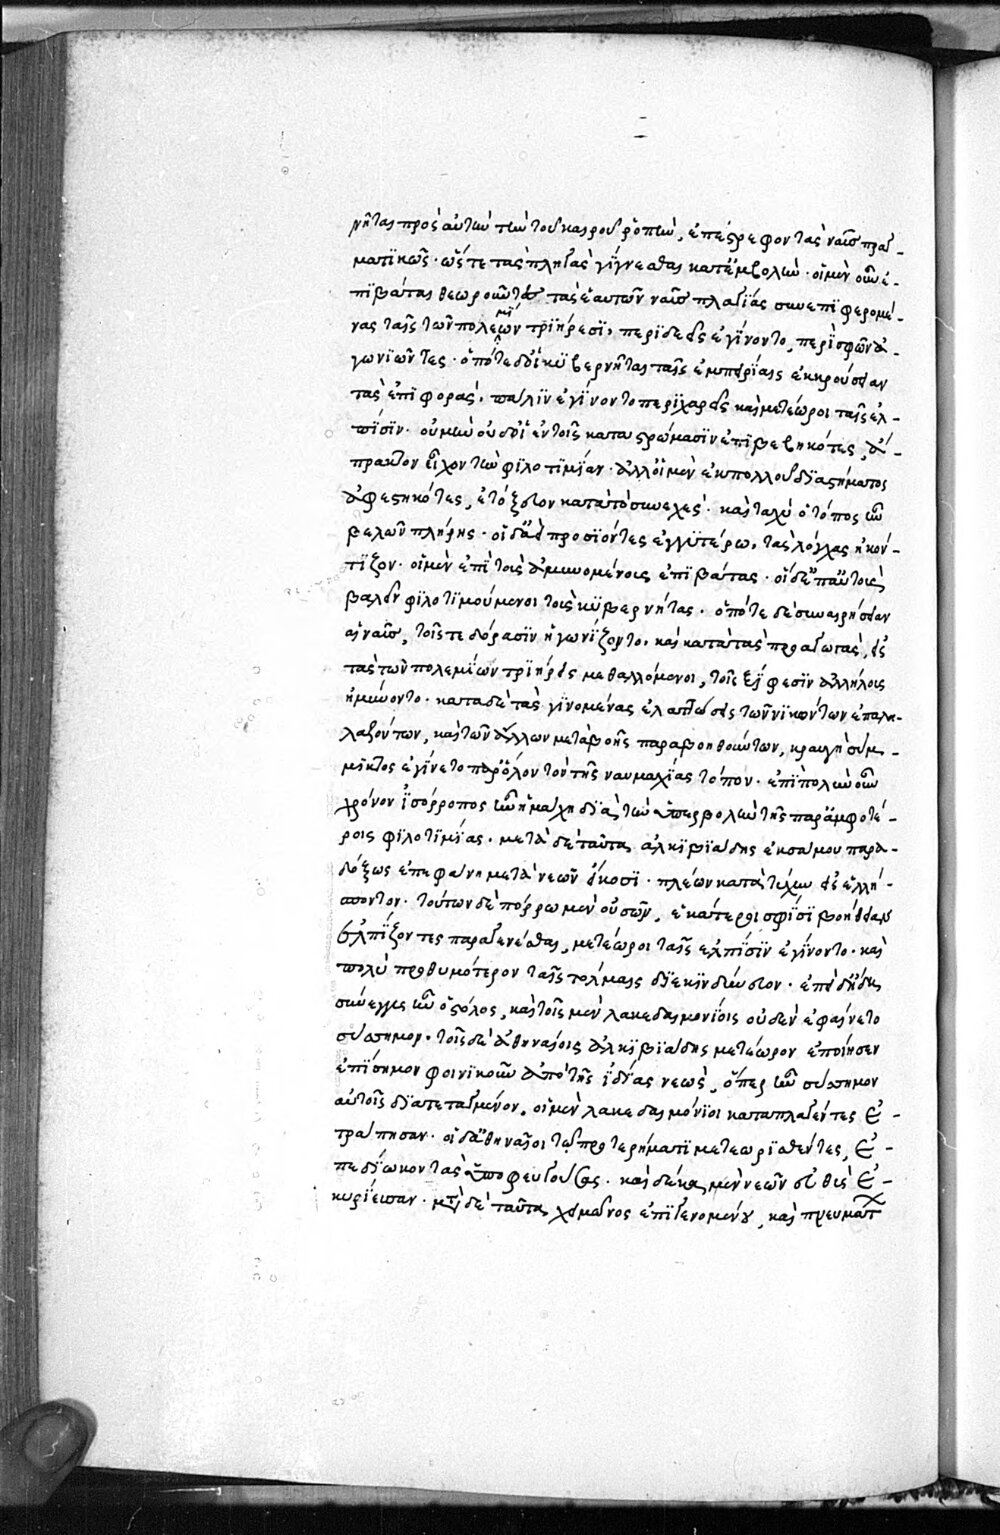 νῆται πρὸς αὐτὴν τὴν τοῦ καιροῦ ῥοπὴν, ἐπέςρεφον τὰς ναῦς πραγ-
ματικῶς· ὥςτε τὰς πληγὰς γίγνεσθαι κατ' ἐμβολὴν· οἱ μὲν οὖν ἐ-
πιβάται θεωροῦντες τὰς ἑαυτῶν ναῦς πλαγίας συνεπιφερομέ-
νας ταῖς τῶν πολεμίων τριήρεσι, περιδεεῖς ἐγίνοντο, περὶ σφῶν ἀ-
γωνιῶντες· ὁπότε δὲ οἱ κυβερνῆται ταῖς ἐμπειρίαις ἐκκρούσειαν
τὰς ἐπιφορὰς, πάλιν ἐγίνοντο περιχαρεῖς καὶ μετέωροι ταῖς ἐλ-
πίσιν· οὐ μὴν οὐδ' οἱ ἐν τοῖς καταςρώμασιν ἐπιβεβηκότες, ἄ-
πρακτον εἶχον τὴν φιλοτιμίαν· ἀλλ' οἱ μὲν ἐκ πολλοῦ διαςήματος
ἀφεςηκότες, ἐτόξευον κατὰ τὸ συνεχές· καὶ ταχὺ ὁ τόπος ἦν
βελῶν πλήρης· οἱ δ' ἀεὶ προσιόντες ἐγγυτέρω, τὰς λόγχας ἠκόν-
τιζον· οἱ μὲν ἐπὶ τοὺς ἀμυνομένους ἐπιβάτας· οἱ δὲ ἐπ' αὐτοὺς
βαλεῖν φιλοτιμούμενοι τοὺς κυβερνήτας· ὁπότε δὲ συναιρήσειαν
αἱ ναῦς, τοῖς τε δόρασιν ἠγωνίζοντο, καὶ κατὰ τὰς προσαγωγὰς, εἰς
τὰς τῶν πολεμίων τριήρεις μεθαλλόμενοι, τοῖς ξίφεσιν ἀλλήλους
ἠμύνοντο· κατὰ δὲ τὰς γινομένας ἐλαττώσεις τῶν νικώντων ἐπαλα-
λαζόντων, καὶ τῶν ἄλλων μετὰ βοῆς παραβοηθούντων, κραυγὴ σύμ-
μικτος ἐγίνετο παρ' ὅλον τὸν τῆς ναυμαχίας τόπον· ἐπὶ πολὺν οὖν
χρόνον ἰσόρροπος ἦν ἡ μάχη διὰ τὴν ὑπερβολὴν τῆς παρ' ἀμφοτέ-
ροις φιλοτιμίας· μετὰ δὲ ταῦτα ἀλκιβιάδης ἐκ σάμου παρα-
δόξως ἐπεφάνη μετὰ νεῶν εἴκοσι· πλέων κατὰ τύχην εἰς ἑλλή-
σποντον· τούτων δὲ πόρρω μὲν οὐσῶν, ἑκάτεροι σφίσι βοήθειαν
ἐλπίζοντες παραγενέσθαι, μετέωροι ταῖς ἐλπίσιν ἐγίνοντο· καὶ
πολὺ προθυμότερον ταῖς τόλμαις διεκινδύνευον· ἐπεὶ δ' ἤδη
σύνεγγυς ἦν ὁ ςόλος, καὶ τοῖς μὲν λακεδαιμονίοις οὐδὲν ἐφαίνετο
σύσσημον· τοῖς δὲ ἀθηναίοις ἀλκιβιάδης μετέωρον ἐποίησεν
ἐπίσημον φοινικοῦν ἀπὸ τῆς ἰδίας νεὼς, ὅπερ ἦν σύσσημον
αὐτοῖς διατεταγμένον, οἱ μὲν λακεδαιμόνιοι καταπλαγέντες ἐ-
τράπησαν· οἱ δ' ἀθηναῖοι τῷ προτερήματι μετεωρισθέντες, ἐ-
πεδίωκον τὰς ὑποφευγούσας· καὶ δέκα μὲν νεῶν εὐθὺς ἐ-
κυρίευσαν· μετὰ δὲ ταῦτα χειμῶνος ἐπιγενομένου, καὶ πνευμάτ